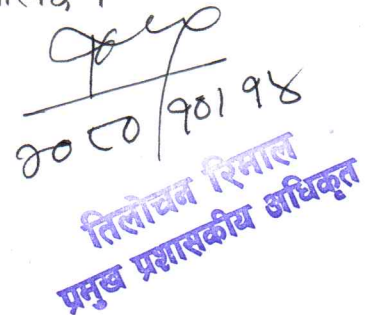 २०८०/१०/१४
तिलोचन रिमाल
प्रमुख प्रशासकीय अधिकृत